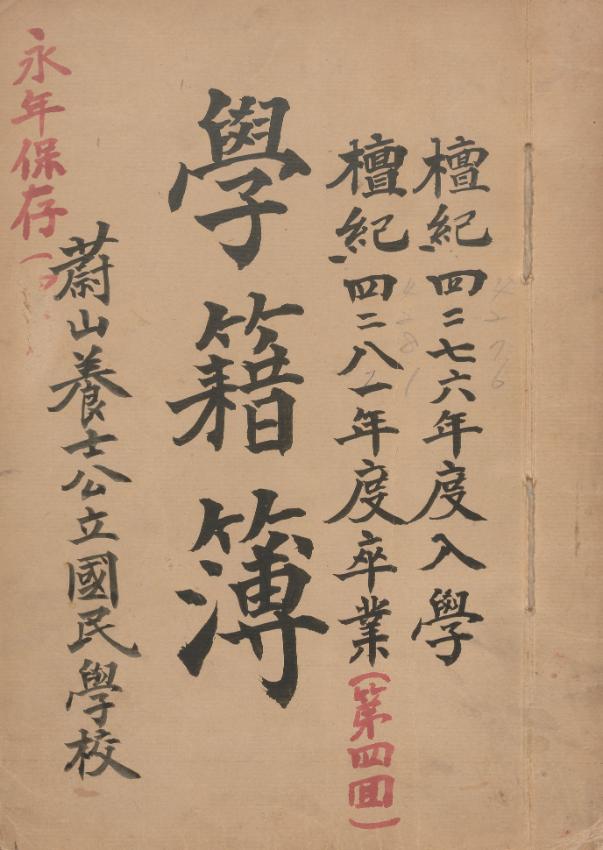 檀紀四二七六年度入學
檀紀四二八一年度卒業(第四回)
學籍簿
蔚山養士公立國民學校
永年保存
4276
4281